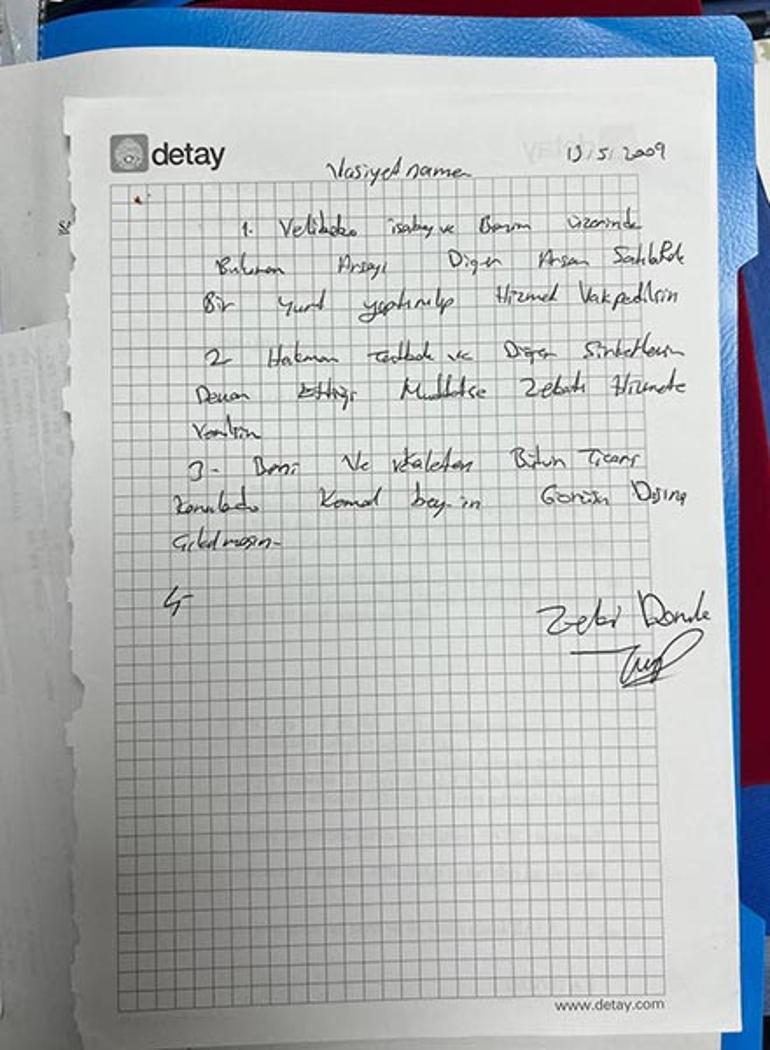 detay
Vasiyetname
13/5/2009
1. Velibaba isabey ve Benim üzerinde
Bulunan Arsayı Diğer Arsa Sahibleri
Bir Yurt yaptırılıp Hizmet Vakfedilsin
2 Hakman ve Diğer Şirketlerin
Devam Ettiği Müddetçe Zekatı Hizmete
Verilsin
3- Beni Ve Bütün Ticari
Konularda Kemal bey-in Görüşü Dışına
Çıkılmasın-
4-
Zeki
www.detay.com